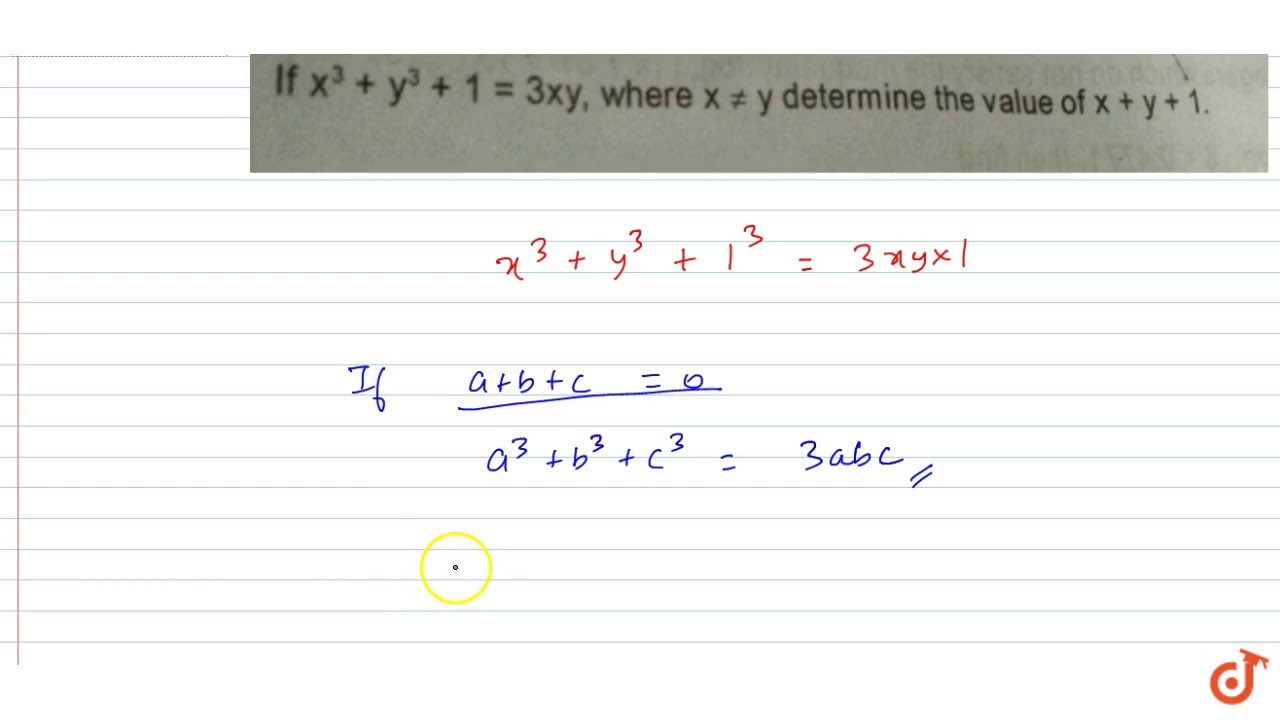 If x³ + y³ + 1 = 3xy, where x ≠ y determine the value of x + y + 1.
x³ + y³ + 1³ = 3xy×1
If a+b+c = 0
a³ + b³ + c³ = 3abc